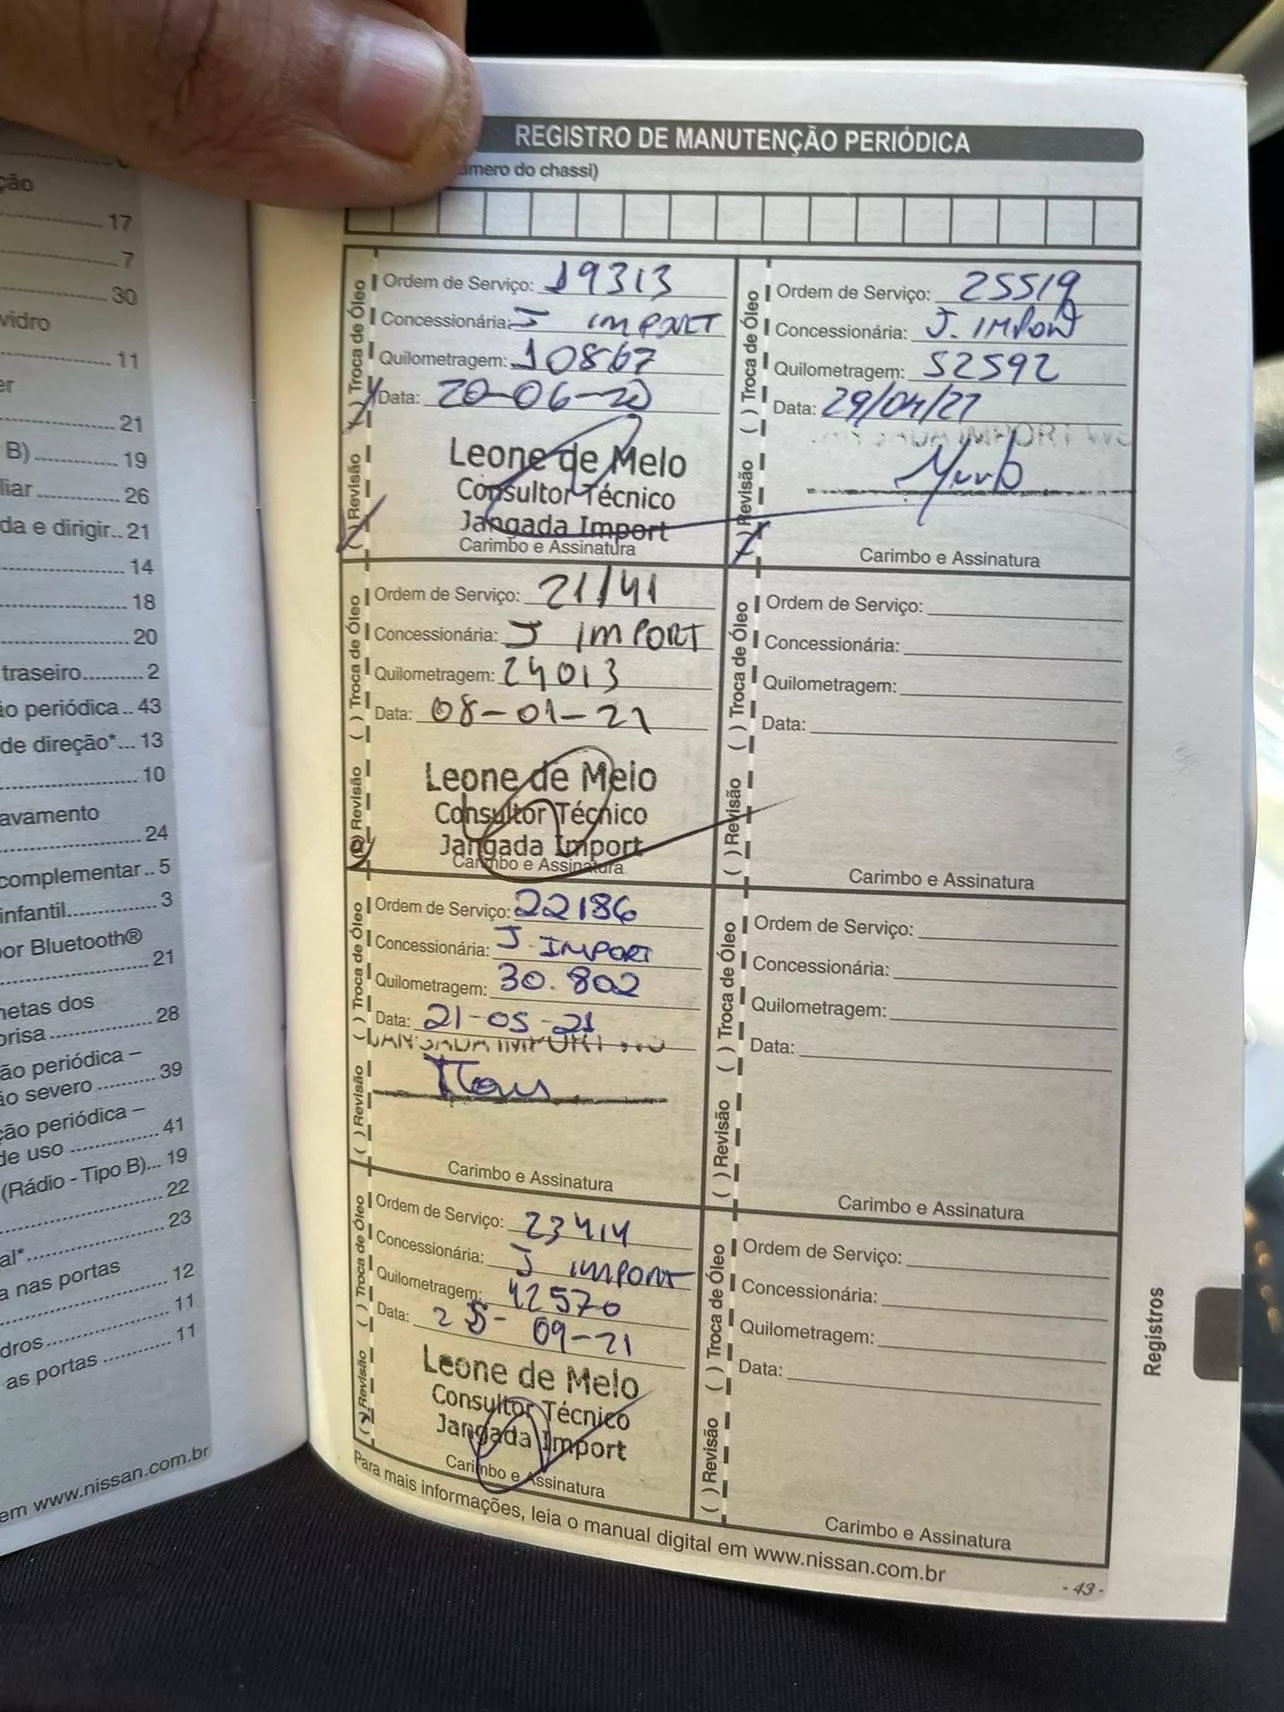 ção
17
7
30
vidro
11
er
21
B) 19
liar 26
da e dirigir.. 21
14
18
20
traseiro 2
ão periódica .. 43
de direção*... 13
10
avamento
24
complementar .. 5
infantil 3
por Bluetooth®
21
netas dos
orisa 28
ão periódica –
o severo 39
ção periódica –
de uso 41
(Rádio - Tipo B)... 19
22
al* 23
a nas portas
12
dros 11
as portas 11
em www.nissan.com.br
REGISTRO DE MANUTENÇÃO PERIÓDICA
úmero do chassi)
( ) Troca de Óleo
( ) Revisão
Ordem de Serviço: 19313
Concessionária: J IMPORT
Quilometragem: 10867
Data: 20-06-20
Leone de Melo
Consultor Técnico
Jangada Import
Carimbo e Assinatura
( ) Troca de Óleo
( ) Revisão
Ordem de Serviço: 21141
Concessionária: J IMPORT
Quilometragem: 24013
Data: 08-01-21
Leone de Melo
Consultor Técnico
Jangada Import
Carimbo e Assinatura
( ) Troca de Óleo
( ) Revisão
Ordem de Serviço: 22186
Concessionária: J. IMPORT
Quilometragem: 30.802
Data: 21-05-21
Carimbo e Assinatura
( ) Troca de Óleo
( ) Revisão
Ordem de Serviço: 23414
Concessionária: J IMPORT
Quilometragem: 42570
Data: 25-09-21
Leone de Melo
Consultor Técnico
Jangada Import
Carimbo e Assinatura
( ) Troca de Óleo
( ) Revisão
Ordem de Serviço: 25519
Concessionária: J. IMPORT
Quilometragem: 52592
Data: 29/04/22
Carimbo e Assinatura
( ) Troca de Óleo
( ) Revisão
Ordem de Serviço:
Concessionária:
Quilometragem:
Data:
Carimbo e Assinatura
( ) Troca de Óleo
( ) Revisão
Ordem de Serviço:
Concessionária:
Quilometragem:
Data:
Carimbo e Assinatura
( ) Troca de Óleo
( ) Revisão
Ordem de Serviço:
Concessionária:
Quilometragem:
Data:
Carimbo e Assinatura
Para mais informações, leia o manual digital em www.nissan.com.br
Registros
- 43 -